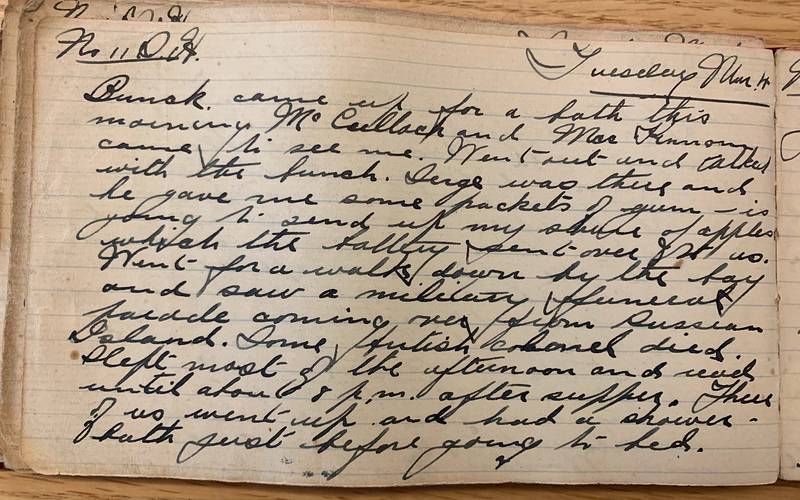 No 11 D.H.
Tuesday Mar. 4
Bunsk. came up for a bath this
morning. McCulloch and Mac Kinnon
came to see me. Went out and talked
with the bunch. Serge was there and
he gave me some packets of gum – is
going to send up my share of apples
which the sent over for us.
Went for a walk down by the bay
and saw a military funeral
parade coming over from Russian
Island. Some British colonel died.
Slept most of the afternoon and read
until about 8 p.m. after supper. Three
of us went up and had a shower-
bath just before going to bed.